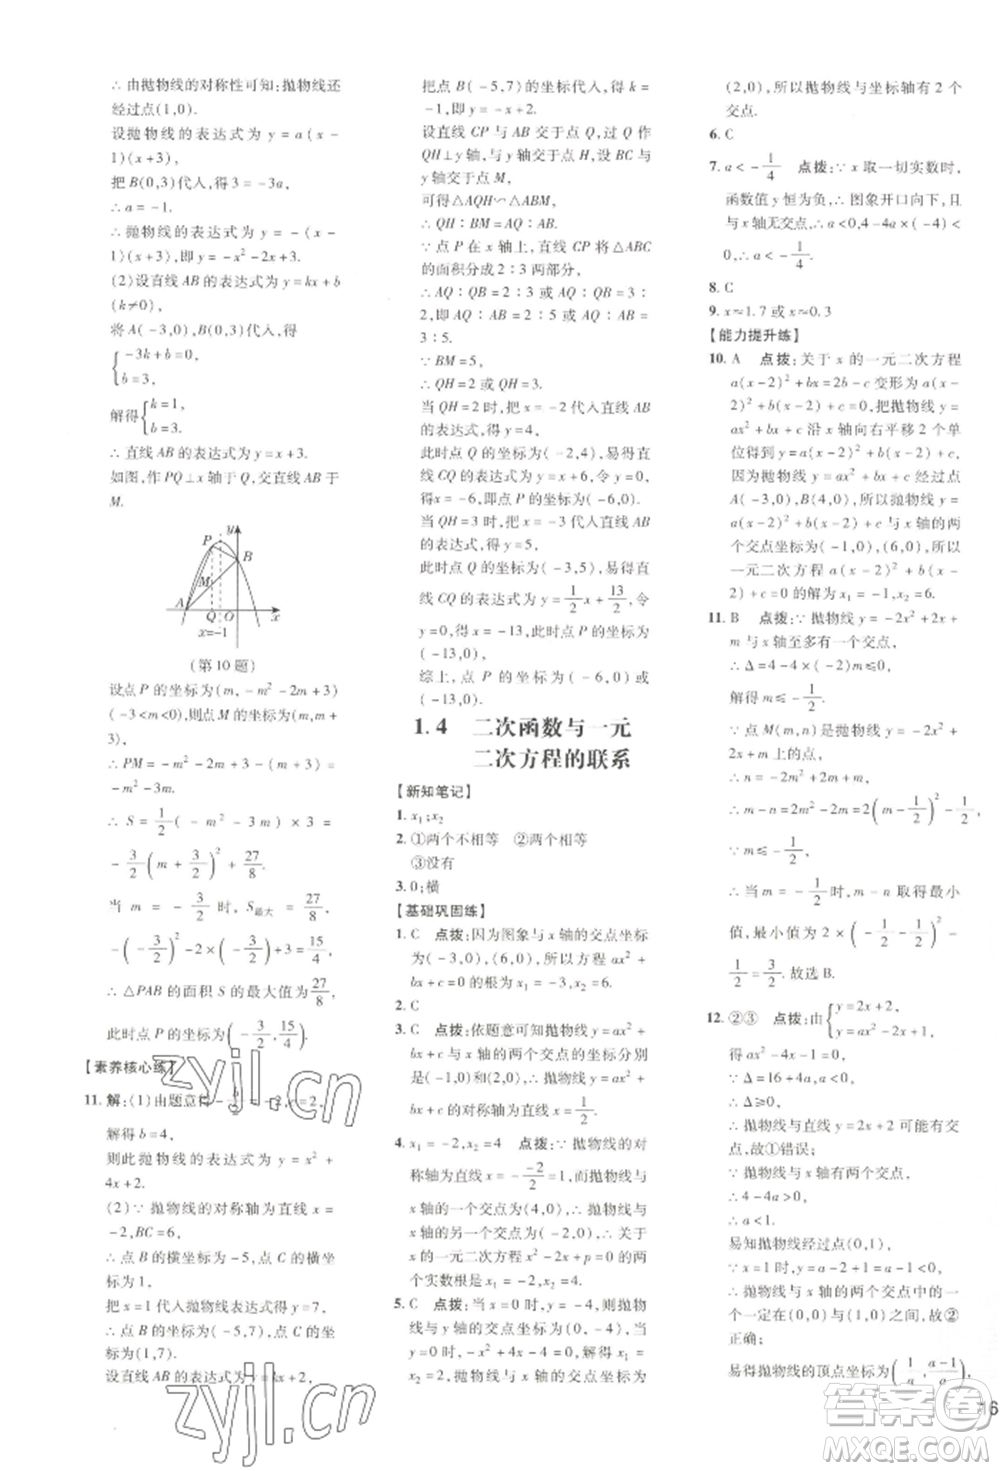 ∴ 由抛物线的对称性可知:抛物线还
经过点(1,0).
设抛物线的表达式为 y = a(x -
1)(x+3),
把 B(0,3)代入,得3 = -3a,
∴ a = -1.
∴ 抛物线的表达式为 y = -(x -
1)(x+3),即 y = -x² -2x+3.
(2)设直线 AB 的表达式为 y = kx + b
(k≠0),
将 A(-3,0),B(0,3)代入,得
{-3k+b=0,
b=3,
解得{k=1,
b=3.
∴ 直线 AB 的表达式为 y = x+3.
如图,作 PQ⊥x 轴于 Q,交直线 AB 于
M.
P
y
B
M
A
Q
O
x
x=-1
(第 10 题)
设点 P 的坐标为(m, -m² -2m+3)
(-3<m<0),则点 M 的坐标为(m,m+
3),
∴ PM = -m² -2m+3-(m+3) =
-m² -3m.
∴ S = 1/2(-m² -3m)×3 =
-3/2(m+3/2)²+27/8.
当 m = -3/2 时,S最大 = 27/8,
-(-3/2)²-2×(-3/2)+3=15/4,
∴ △PAB 的面积 S 的最大值为27/8,
此时点 P 的坐标为(-3/2,15/4).
【素养核心练】
11. 解:(1)由题意得
解得 b=4,
则此抛物线的表达式为 y = x² +
4x+2.
(2)∵ 抛物线的对称轴为直线 x =
-2,BC=6,
∴ 点 B 的横坐标为 -5,点 C 的横坐
标为 1.
把 x=1 代入抛物线得 y=7,
∴ 点 B(-5,7),C(1,7).
设直线 AB 的表达式为 y=kx+2,
把点 B(-5,7)的坐标代入,得 k =
-1,即 y = -x+2.
设直线 CP 与 AB 交于点 Q,作 QH
QH⊥y 轴,与 y 轴交于点 H,设 BC 与 y
轴交于点 M,
可得△AQH∽△ABM,
∴ QH : BM = AQ : AB.
∵ 点 P 在 x 轴上,直线 CP 将△ABC
的面积分成 2 : 3 两部分,
∴ AQ : QB = 2 : 3 或 AQ : QB = 3 :
2,即 AQ : AB = 2 : 5 或 AQ : AB =
3 : 5.
∵ BM=5,
∴ QH=2 或 QH=3.
当 QH=2 时,把 x = -2 代入直线 AB
的表达式,得 y=4,
此时点 Q 的坐标为(-2,4),易得直
线 CQ 的表达式为 y=x+6,令 y=0,
得 x = -6,此时点 P 的坐标为(-6,0).
当 QH=3 时,把 x = -3 代入直线 AB
的表达式,得 y=5,
此时点 Q 的坐标为(-3,5),易得直
线 CQ 的表达式为 y = 1/2x+13/2,令
y=0,得 x = -13,此时点 P 的坐标为
(-13,0).
综上,点 P 的坐标为(-6,0)或
(-13,0).
1.4 二次函数与一元
二次方程的联系
【新知笔记】
1. x₁;x₂
2. ①两个不相等 ②两个相等
③没有
3. 0;横
【基础巩固练】
1. C 点拨:因为图象与 x 轴的交点坐标
为(-3,0),(6,0),所以方程 ax² +
bx+c=0 的根为 x₁ = -3,x₂=6.
2. C
3. C 点拨:依题意可知抛物线 y = ax² +
bx+c 与 x 轴的两个交点的坐标分别
是(-3,0),(1,0),∴ 抛物线 y = ax² +
bx+c 的对称轴为直线 x = -1.
4. x₁ = -2,x₂=4 点拨:∵ 抛物线的对
称轴为直线 x = -(-2)/2 = 1,而抛物线
与 x 轴的一个交点为(4,0),∴ 抛物线
与 x 轴的另一个交点为(-2,0),∴ 关于
x 的一元二次方程 x² -2x+p=0 的两
个实数根是 x₁ = -2,x₂=4.
5. C 点拨:当 x=0 时,y = -4,则抛物
线与 y 轴的交点坐标为(0,-4);当 y
=0 时,x² -4x+4=0,解得 x₁
= x₂ = 2,抛物线与 x 轴的交点坐标为
(2,0),所以抛物线与坐标轴有 2 个
交点.
6. C
7. a < -1/4 点拨:∵ x 取一切实数时,
函数值 y 恒为负,∴ 图象开口向下,且
与 x 轴无交点,∴ a<0,4-4a×(-4)<
0,∴ a < -1/4.
8. C
9. x≈1.7 或 x≈0.3
【能力提升练】
10. A 点拨:关于 x 的一元二次方程
a(x-2)² + bx = 2b - c 变形为
a(x-2)²+b(x-2)+c=0,把抛物线 y =
ax² + bx + c 沿 x 轴向右平移 2 个单
位得到 y = a(x-2)²+b(x-2)+c.
因为抛物线 y = ax² + bx + c 经过点
A(-3,0),B(4,0),所以抛物线 y =
a(x-2)²+b(x-2)+c 与 x 轴的两
个交点坐标为(-1,0),(6,0),所以
一元二次方程 a(x-2)²+bx = 2b
- c 的解为 x₁ = -1,x₂=6.
11. B 点拨:∵ 抛物线 y = -2x² + 2x +
m 与 x 轴至多有一个交点,
∴ Δ = 4-4×(-2)×m≤0,
解得 m≤-1/2.
∵ 点 M(m,n)是抛物线 y = -2x² +2x
+m 上的点,
∴ n = -2m² +2m+m = -2m² +3m,
∴ m-n = 2m² -2m = 2(m-1/2)²-1/2.
∵ m≤-1/2,
∴ 当 m = -1/2 时,m-n 取得最小
值,最小值为 2×(-1/2-1/2)²-
1/2=3/2. 故选 B.
12. ②③ 点拨:由{y=2x+2,
y=ax²-2x+1,
得 ax²-4x-1=0,
∴ Δ=16+4a,当 a≥-4 时,
∴ Δ≥0,
∴ 抛物线与直线 y=2x+2 可能有交
点,故①错误;
∵ 抛物线与 x 轴有两个交点,
∴ 4-4a>0,
∴ a<1.
易知抛物线经过点(0,1),
∵ x=1 时,y=a-2+1=a-1<0,
∴ 抛物线与 x 轴的两个交点中的一
个一定在(0,0)与(1,0)之间,故②
正确;
易得抛物线的顶点坐标为(1/a,(a-1)/a),
zyjl.cn
zyjl.cn
答案圈
MXQE.COM
16